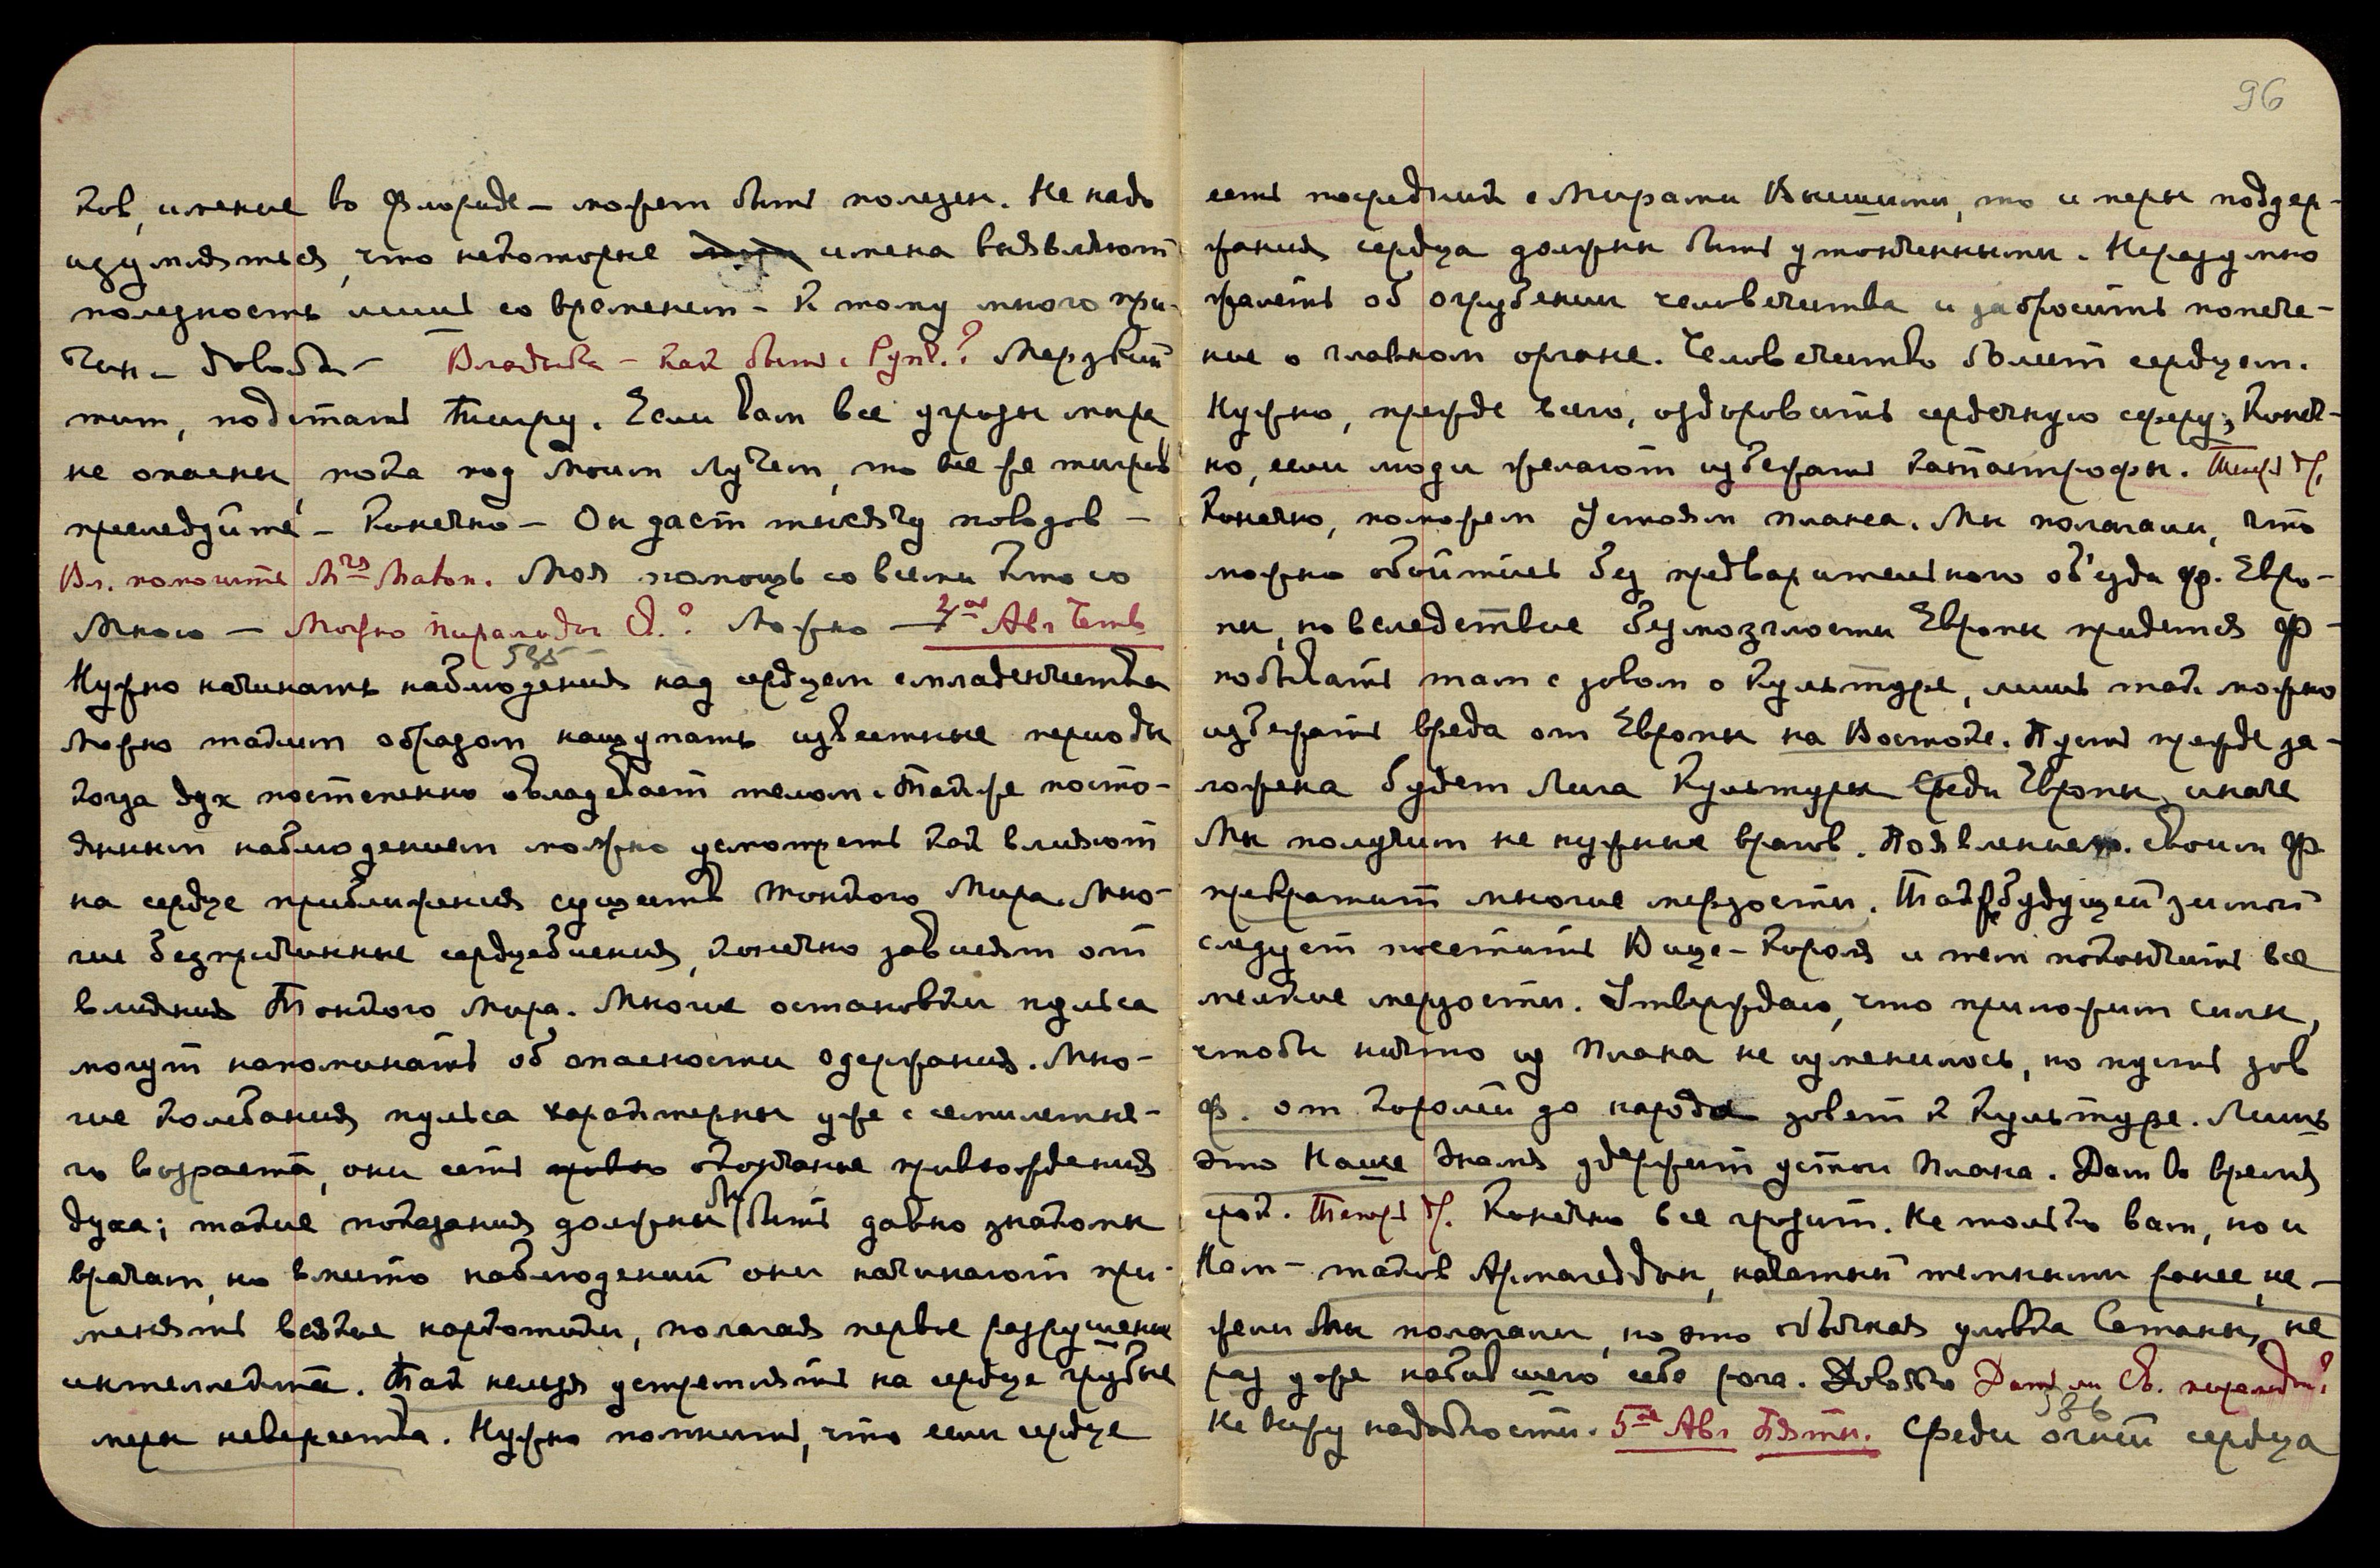 ков, имение во Флориде – может быть полезен. Не надо
изумляться, что некоторые имена выявляют
полезность лишь со временем – К тому много при-
чин – Довольно – Владыка – как быть с ? Мерзкий
тип, подстать Тигру. Если вам все угрозы мира
не опасны, пока под Моим Лучем, то все же тигров
преследуйте – Конечно – Он даст тысячу поводов –
Вл. помогите Mrs. Моя помощь со всеми кто со
Мною – Можно ? Можно – Авг Четв
535
Нужно начинать наблюдения над сердцем с младенчества
Можно таким образом нащупать известные периоды
когда дух постепенно овладевает телом. Также посто-
янным наблюдением можно усмотреть как влияют
на сердце приближения существ Тонкого Мира. Мно-
гие безпричинные сердцебиения, конечно зависят от
влияния Тонкого Мира. Многие остановки пульса
могут напоминать об опасности одержания. Мно-
гие колебания пульса характерны уже с семилетне-
го возраста, они есть окончание привхождения
духа; такие показания должны бы быть давно знакомы
врачам, но вместо наблюдений они начинают при-
менять всякие наркотики, полагая первые разрушения
интеллекта. Так нельзя устремлять на сердце грубые
меры невежества. Нужно помнить, что если сердце
96
есть посредник с Мирами Высшими, то и меры поддер-
жания сердца должны быть утонченными. Неразумно
жалеть об огрубении человечества и забросить попече-
ние о главном органе. Человечество болит сердцем.
Нужно, прежде всего, оздоровить сердечную сферу, Конеч-
но, если люди желают избежать катастрофы.
Конечно, поможем Устоям плана. Мы полагали, что
можно обойтись без предварительного об'езда ф. Евро-
пы, но вследствие безмозглости Европы придется Ф
побывать там с зовом о Культуре, лишь так можно
избежать вреда от Европы на Востоке. Пусть прежде за-
ложена будет Лига Культуры среди Европы, иначе
Мы получим не нужные врагов. Появлением своим Ф
прекратит многие мерзости. Также будущей зимой
следует посетить Вице-Короля и тем покончить все
мелкие мерзости. Утверждаю, что приложим силы,
чтобы ничто из Плана не изменилось, но пусть зов
Ф. от королей до народа зовет к Культуре. Лишь
это Наше Знамя удержит устои Плана. Дам во время
срок. Конечно все грозит. Не только вам, но и
Нам – таков Армагеддон, начатый темными ранее, не-
жели Мы полагали, но это обычная уловка Сатаны, не
раз уже набившего себе рога. Довольно Дать ли Св.
Не вижу надобности. 5ое Авг Пятн.
536
Среди огней сердца